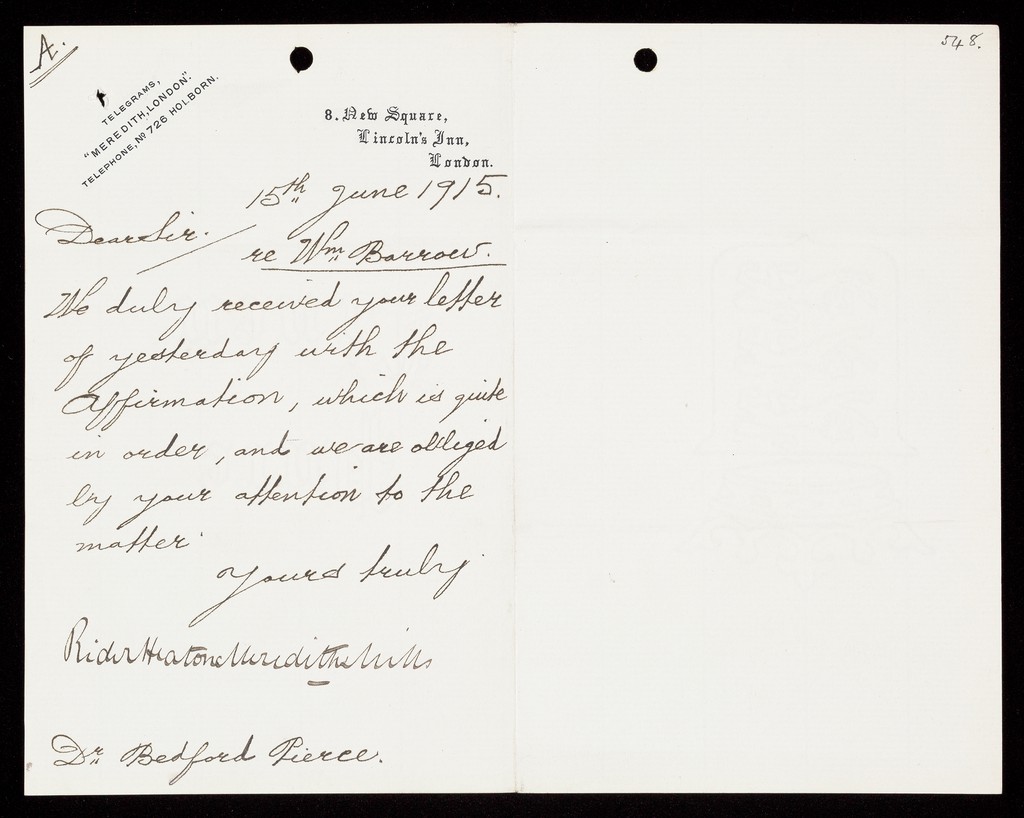 A.
548.
TELEGRAMS,
"MEREDITH, LONDON."
TELEPHONE, Nº 726 HOLBORN.
8. New Square,
Lincoln's Inn,
London.
15th June 1915.
Dear Sir.
re Wm Barrow.
We duly received your letter
of yesterday with the
Affirmation, which is quite
in order, and we are obliged
by your attention to the
matter.
Yours truly
Rider Heaton Meredith & Mills
Dr Bedford Pierce.